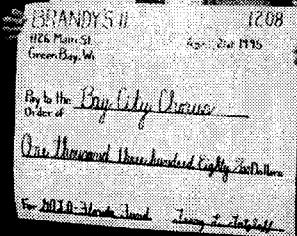 BRANDY'S II 1208
1126 Main St.
Green Bay, Wi
21st 1995
Pay to the Order of Bay City Chorus
One thousand three hundred Eighty Two Dollars
For Florida Fund